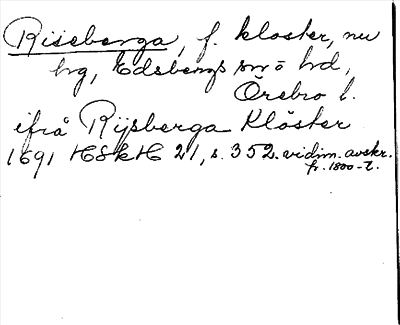 Riseberga, f. kloster, nu
hrg, Edsbergs sn o hd,
Örebro l.
ifrå Rijsberga Klöster
1691 HSkH 21, s. 352. vidim. avskr.
fr. 1800-t.